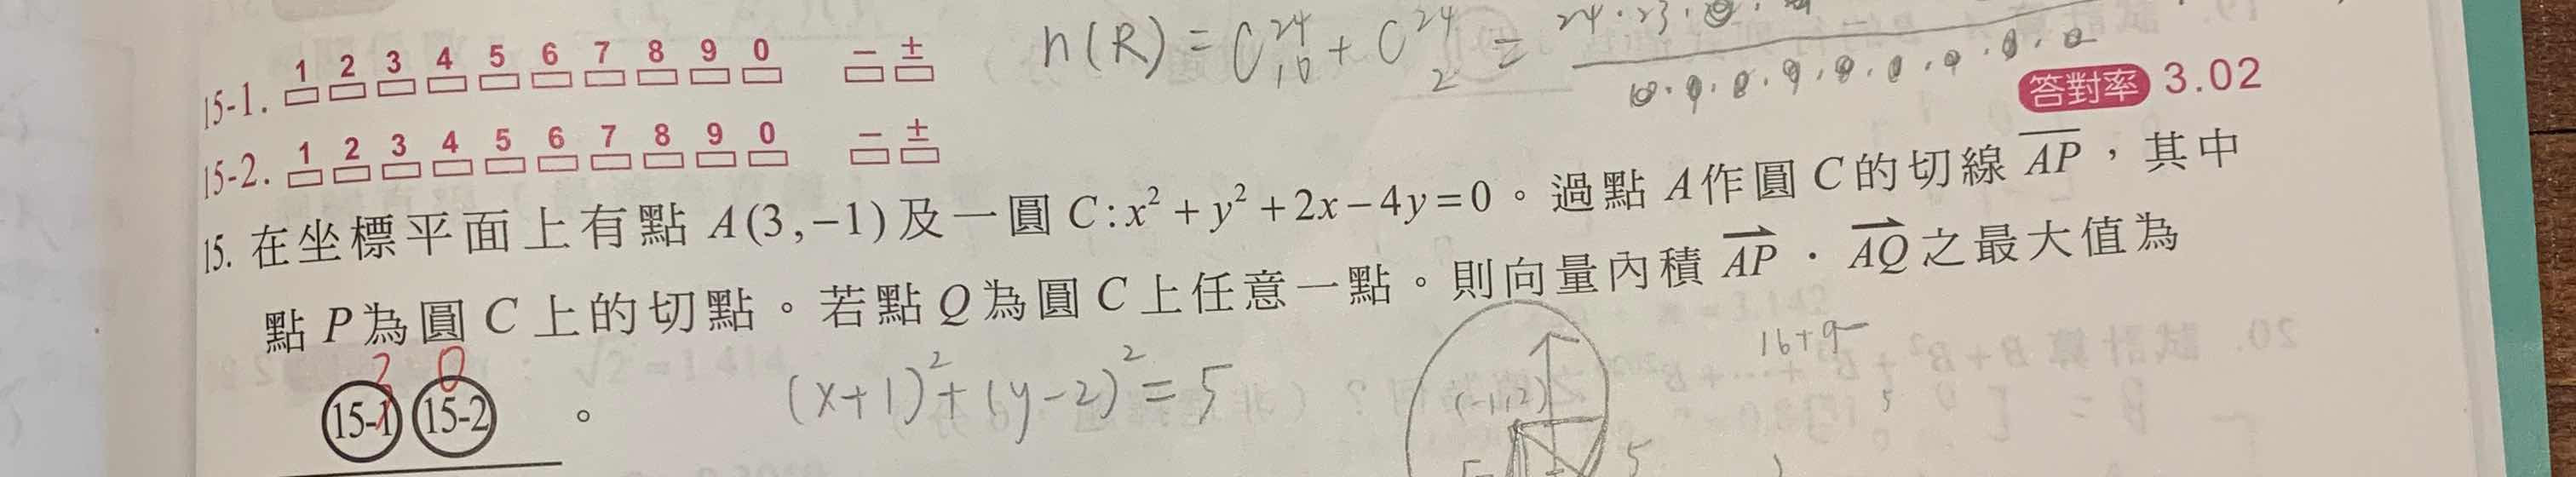 15-1. 1 2 3 4 5 6 7 8 9 0 − ±
n(R) = C²⁴₁₀ + C²⁴₂ =
15-2. 1 2 3 4 5 6 7 8 9 0 − ±
答對率 3.02
15. 在坐標平面上有點 A(3,−1) 及一圓 C:x²+y²+2x−4y=0。過點 A作圓 C 的切線 AP,其中
點 P 為圓 C 上的切點。若點 Q 為圓 C 上任意一點。則向量內積 AP · AQ 之最大值為
2 0
15-1 15-2 。
(x+1)²+(y−2)²=5
(-1,2)
16+9
5